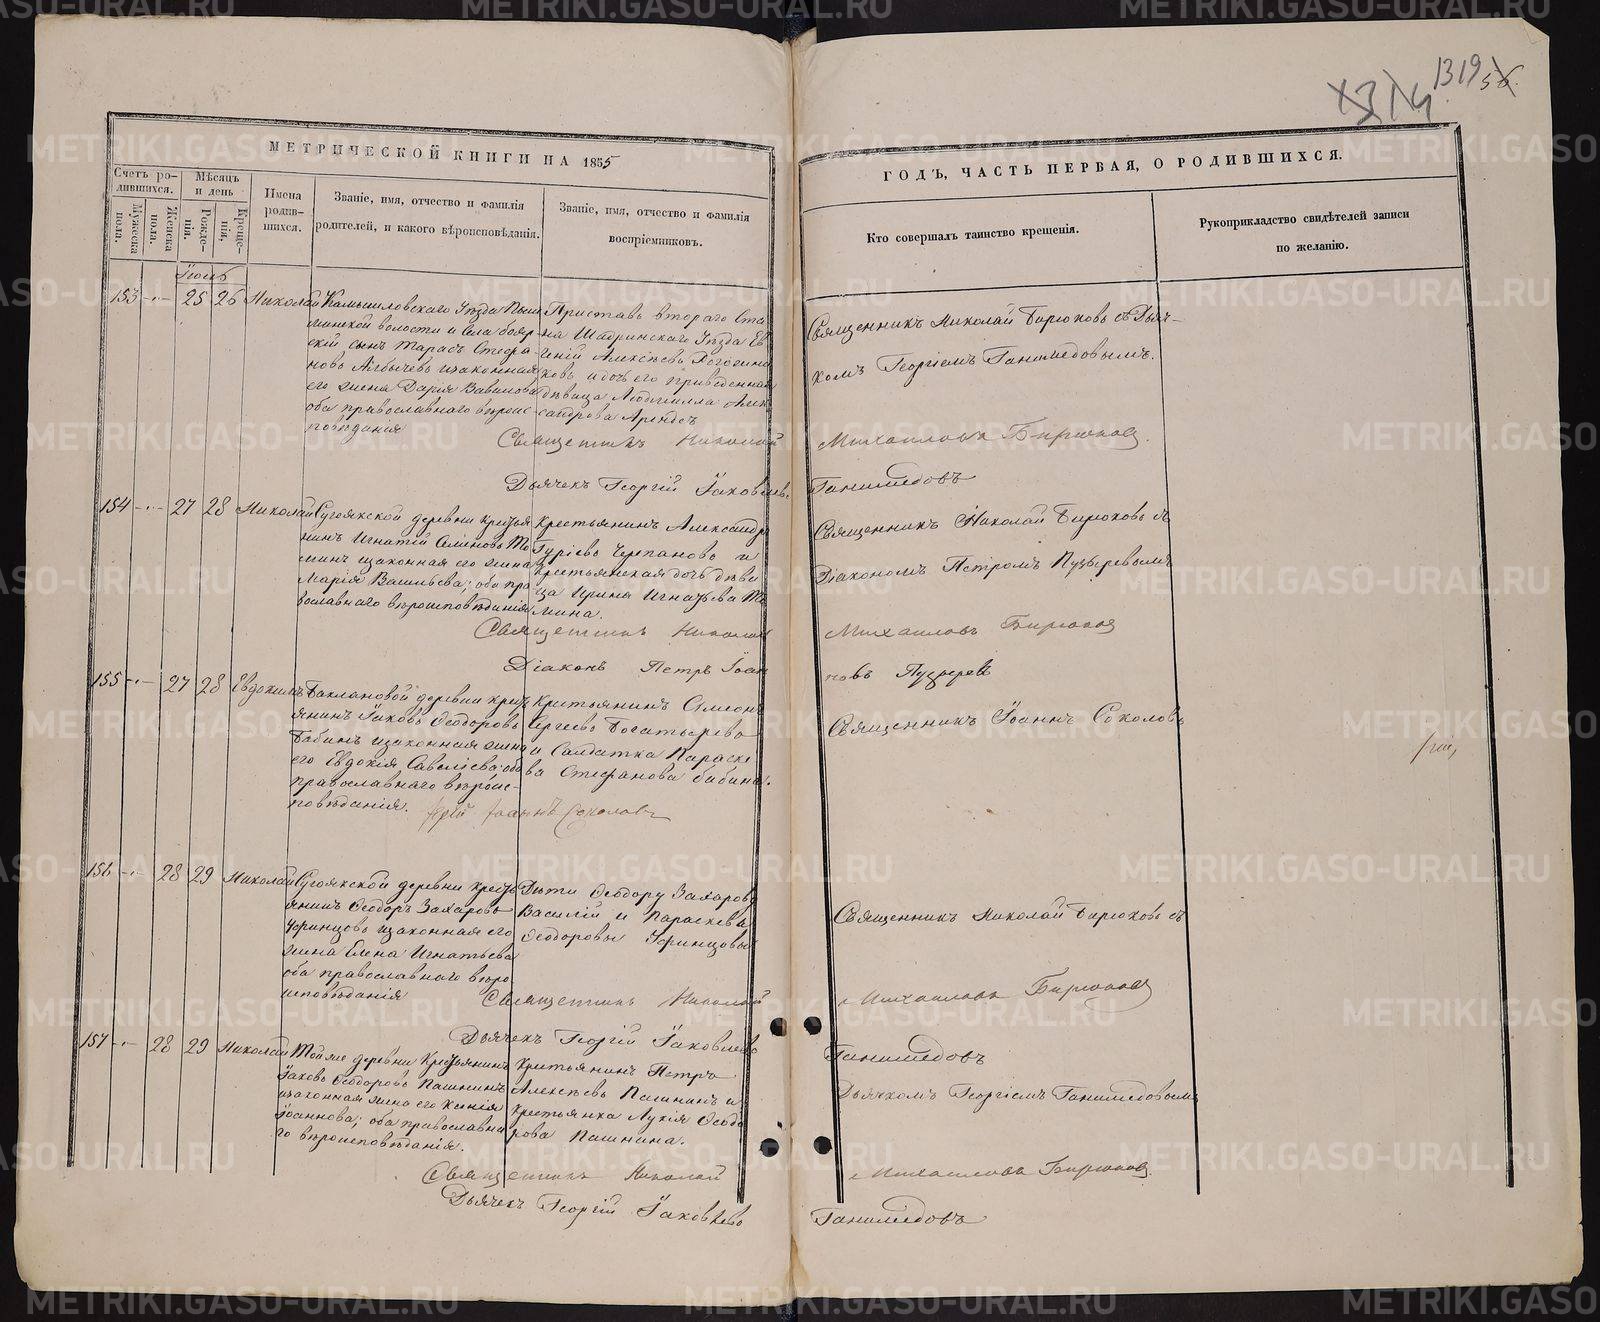 1319
МЕТРИЧЕСКОЙ КНИГИ НА 1855
ГОДЪ, ЧАСТЬ ПЕРВАЯ, О РОДИВШИХСЯ.
Счетъ ро-
дившихся.
Мужеска
пола.
Женска
пола.
Мѣсяцъ
и день
Рожде-
нія.
Креще-
нія.
Имена
родив-
шихся.
Званіе, имя, отчество и фамилія
родителей, и какого вѣроисповѣданія.
Званіе, имя, отчество и фамилія
воспріемниковъ.
Кто совершалъ таинство крещенія.
Рукоприкладство свидѣтелей записи
по желанію.
153 25 26 Николай
Камышловскаго Уѣзда Пыш
минской волости и села бояр
скій сынъ Тарасъ Стефа-
новъ изаконная
его жена Дарія Вавилова
оба православнаго вѣроис-
повѣданія
Приставъ втораго Ста
на Шадринскаго Уѣзда Ев
геній Алексѣевъ
ковъ и дочь его приведенная
дѣвица Людмилла Алек
сандрова Арендсъ
Священникъ Николай Бирюковъ съ Дьяч-
комъ Георгіемъ Ганимедовымъ.
Священникъ Николай Михаиловъ Бирюковъ.
Дьячекъ Георгій Іаковлевъ Ганимедовъ
154 27 28 Николай
Сугоякской деревни крестья
нинъ Игнатій Семеновъ То
минъ изаконная его жена
Марія Васильева; оба пра
вославнаго вѣроисповѣданія
Крестьянинъ Александръ
Гуріевъ Черепановъ и
крестьянская дочь дѣви
ца Ирина Игнатьева То
мина.
Священникъ Николай Бирюковъ съ
Діакономъ Петромъ Пузыревымъ
Священникъ Николай Михаиловъ Бирюковъ
Діаконъ Петръ Іоанновъ Пузыревъ
155 27 28 Евдокимъ
Баклановой деревни крест
янинъ Іаковъ Ѳеодоровъ
Бабинъ изаконная жена
его Евдокія Савеліева; оба
православнаго вѣроис-
повѣданія.
Крестьянинъ Симеонъ
Сергіевъ Богатыревъ
и Салдатка Параске
ва Стефанова бабина.
Священникъ Іоаннъ Соколовъ
Іерей Іоаннъ Соколовъ
156 28 29 Николай
Сугоякской деревни крестьь
янинъ Ѳеодоръ Захаровъ
Уфинцовъ изаконная его
жена Елена Игнатьева
оба православнаго вѣро
исповѣданія
Дѣти Ѳеодору Захарову
Василій и Параскева
Ѳеодоровы Уфинцовы
Священникъ Николай Бирюковъ съ
Священникъ Николай Михаиловъ Бирюковъ
Дьячекъ Георгій Іаковлевъ Ганимедовъ
157 28 29 Николай
Той же деревни Крестьянинъ
Іаковъ Ѳеодоровъ Пашнинъ
изаконная жена его Ксенія
Іоаннова; оба православна
го вѣроисповѣданія.
Крестьянинъ Петръ
Алексѣевъ Пашнинъ и
крестьянка Лукія Ѳеодо
рова Пашнина.
Дьячкомъ Георгіемъ Ганимедовымъ
Священникъ Николай Михаиловъ Бирюковъ.
Дьячекъ Георгій Іаковлевъ Ганимедовъ
METRIKI.GASO-URAL.RU